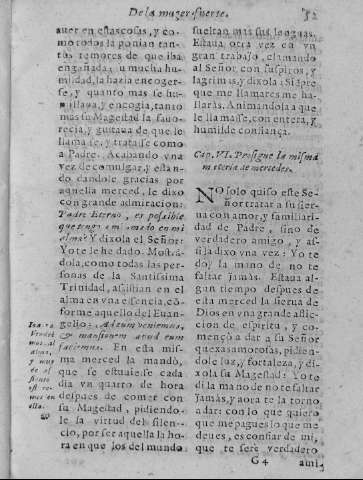 De la muger fuerte. 52
auer en estas cosas, y co-
mo todos la ponian tan-
tos temores de que iba
engañada; u mucha hu-
mildad, la hazia encoger-
se, y quanto mas se hu-
millaua, y encogia, tanto
mas su Magestad la fauo-
recia, y gustaua de que le
llamase, y tratase como
a Padre. Acabando vna
vez de comulgar, y estan-
do dandole gracias por
aquella merced, le dixo
con grande admiracion:
Padre Eterno, es possible
que tengo a mi amado en mi
alma? Y dixola el Señor:
Yo te le he dado. Mostrã-
dola, como todas las per-
sonas de la Santissima
Trinidad, assistian en el
alma en vna essencia, cõ-
forme aquello del Euan-
gelio: Ad eum veniemus,
& mansionem apud eum
faciemus. En esta mis-
ma merced la mandò,
que se estuuiesse cada
dia vn quarto de hora
despues de comer con
su Magestad, pidiendo-
le la virtud del silen-
cio, por ser aquella la ho-
ra en que los del mundo
Ioan. 14.
Vendre
mos al
alma,
y
de al
est re-
mos en
ella.
sueltan mas sus lenguas.
Estaua otra vez en vn
gran trabajo, clamando
al Señor con suspiros, y
lagrimas, y dixola: Siẽpre
que me llamares me ha-
llaràs. Animandola a que
le llamasse, con entera, y
humilde confiança.
Cap. VI. Prosigue la misma
materia de mercedes.
No solo quiso este Se-
ñor tratar a su sier-
ua con amor, y familiari-
dad de Padre, sino de
verdadero amigo, y as-
si la dixo vna vez: Yo te
doy la mano de no te
faltar jamàs. Estaua al-
gun tiempo despues de
esta merced la sierua de
Dios en vna grande aflic-
cion de espiritu, y co-
mençò a dar a su Señor
quexas amorosas, pidien-
dole luz, fortaleza, y di-
xola su Magestad: Yo te
di la mano de no te faltar
jamàs, y aora te la torno
a dar: con lo que quiero
que me pagues lo que me
deues, es confiar de mi,
que te serè verdadero
G 4 ami-